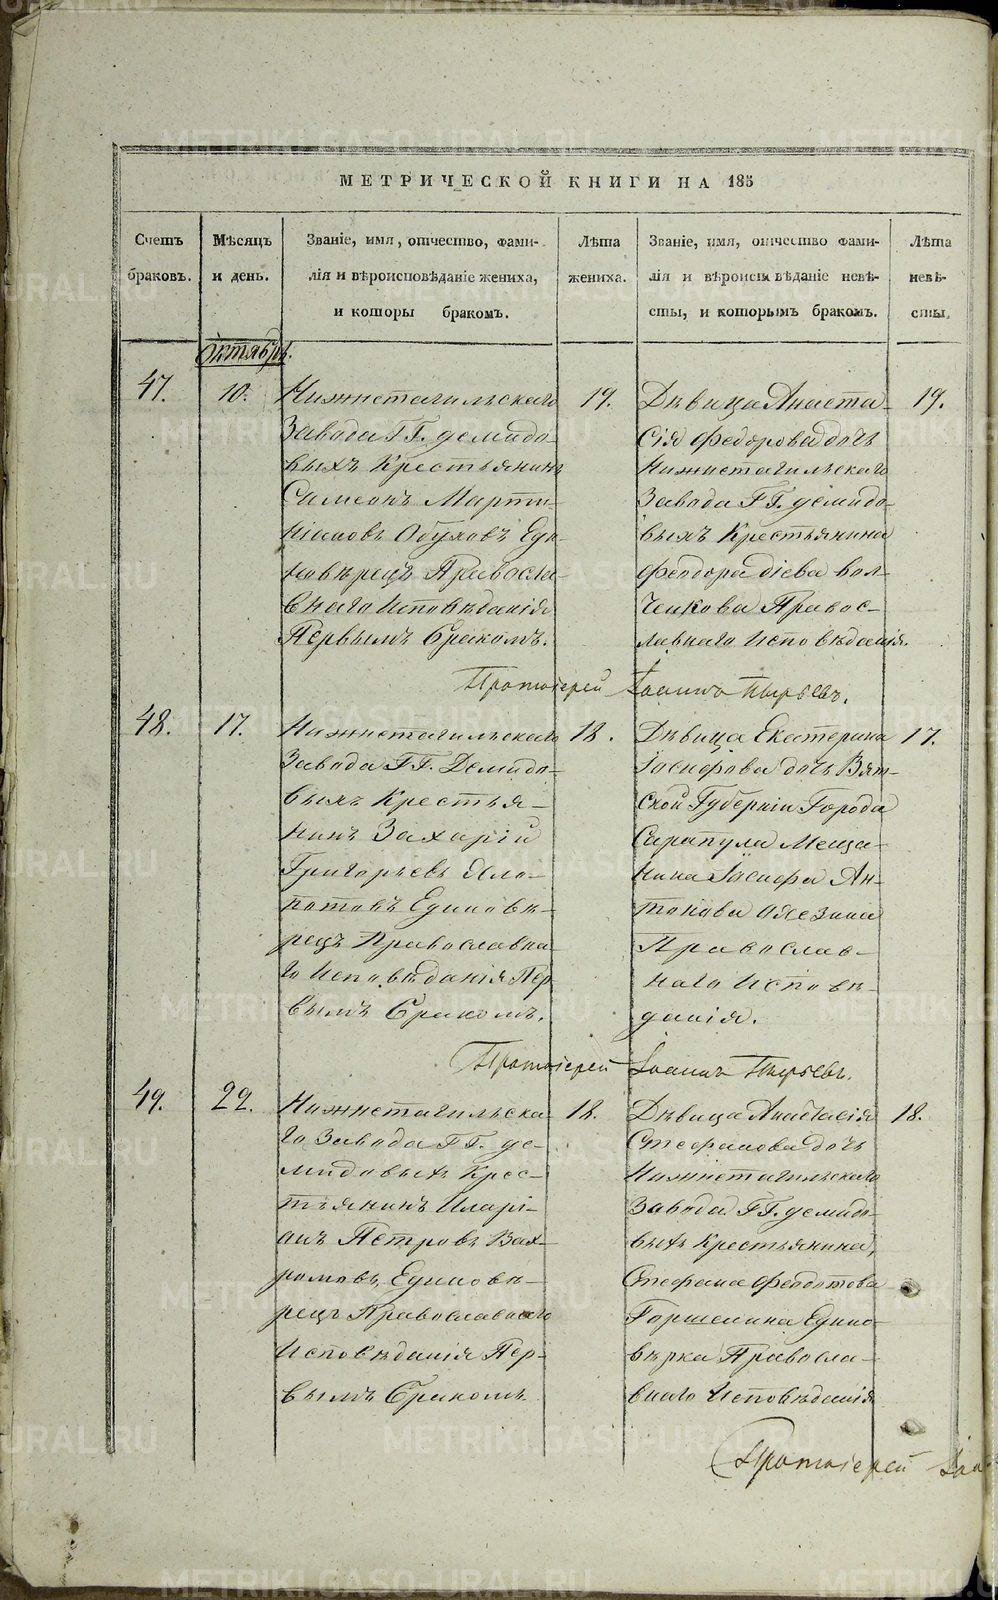 МЕТРИЧЕСКОЙ КНИГИ НА 185
Счетъ браковъ.
Мѣсяцъ и день.
Званіе, имя, отчество, фами-
лія и вѣроисповѣданіе жениха,
и которы бракомъ.
Лѣта жениха.
Званіе, имя, отчество фами-
лія и вѣроисповѣданіе невѣ-
сты, и которымъ бракомъ.
Лѣта невѣ-
сты.
Октябрь.
47.
10.
Нижнетагильскаго
Завода ГГ. демидо-
выхъ Крестьянинъ
Симеонъ Марти-
ніановъ Обуховъ Еди-
новѣрецъ Правосла-
внаго Исповѣданія
Первымъ бракомъ.
19.
Дѣвица Анаста-
сія Федорова дочь
Нижнетагильскаго
Завода ГГ. демидо-
выхъ Крестьянина
Феодора діева вол-
ченкова Правос-
лавнаго Исповѣданія.
19.
Протоіерей Іоаннъ Пырьевъ.
48.
17.
Нижнетагильскаго
Завода ГГ. Демидо-
выхъ Крестья-
нинъ Захарій
Григорьевъ
Единовѣ-
рецъ Православна-
го Исповѣданія Пер
вымъ бракомъ.
18.
Дѣвица Екатерина
Іосифова дочь Вят-
ской Губерніи Города
Сарапула Меща-
нина Іосифа Ан-
тонова
Православ-
наго Исповѣ-
данія.
17.
Протоіерей Іоаннъ Пырьевъ.
49.
22.
Нижнетагильска
го Завода ГГ. де-
мидовыхъ Крес-
тьянинъ Иларі-
анъ Петровъ Вах-
ромовъ Единовѣ-
рецъ Православнаго
Исповѣданія Пер-
вымъ бракомъ
18.
Дѣвица Анастасія
Стефанова дочь
Нижнетагильскаго
Завода ГГ. демидо-
выхъ Крестьянина,
Стефана Федотова
Горшенина Едино-
вѣрка Правосла-
внаго Исповѣданія
18.
Протоіерей Іоа
METRIKI.GASO-URAL.RU